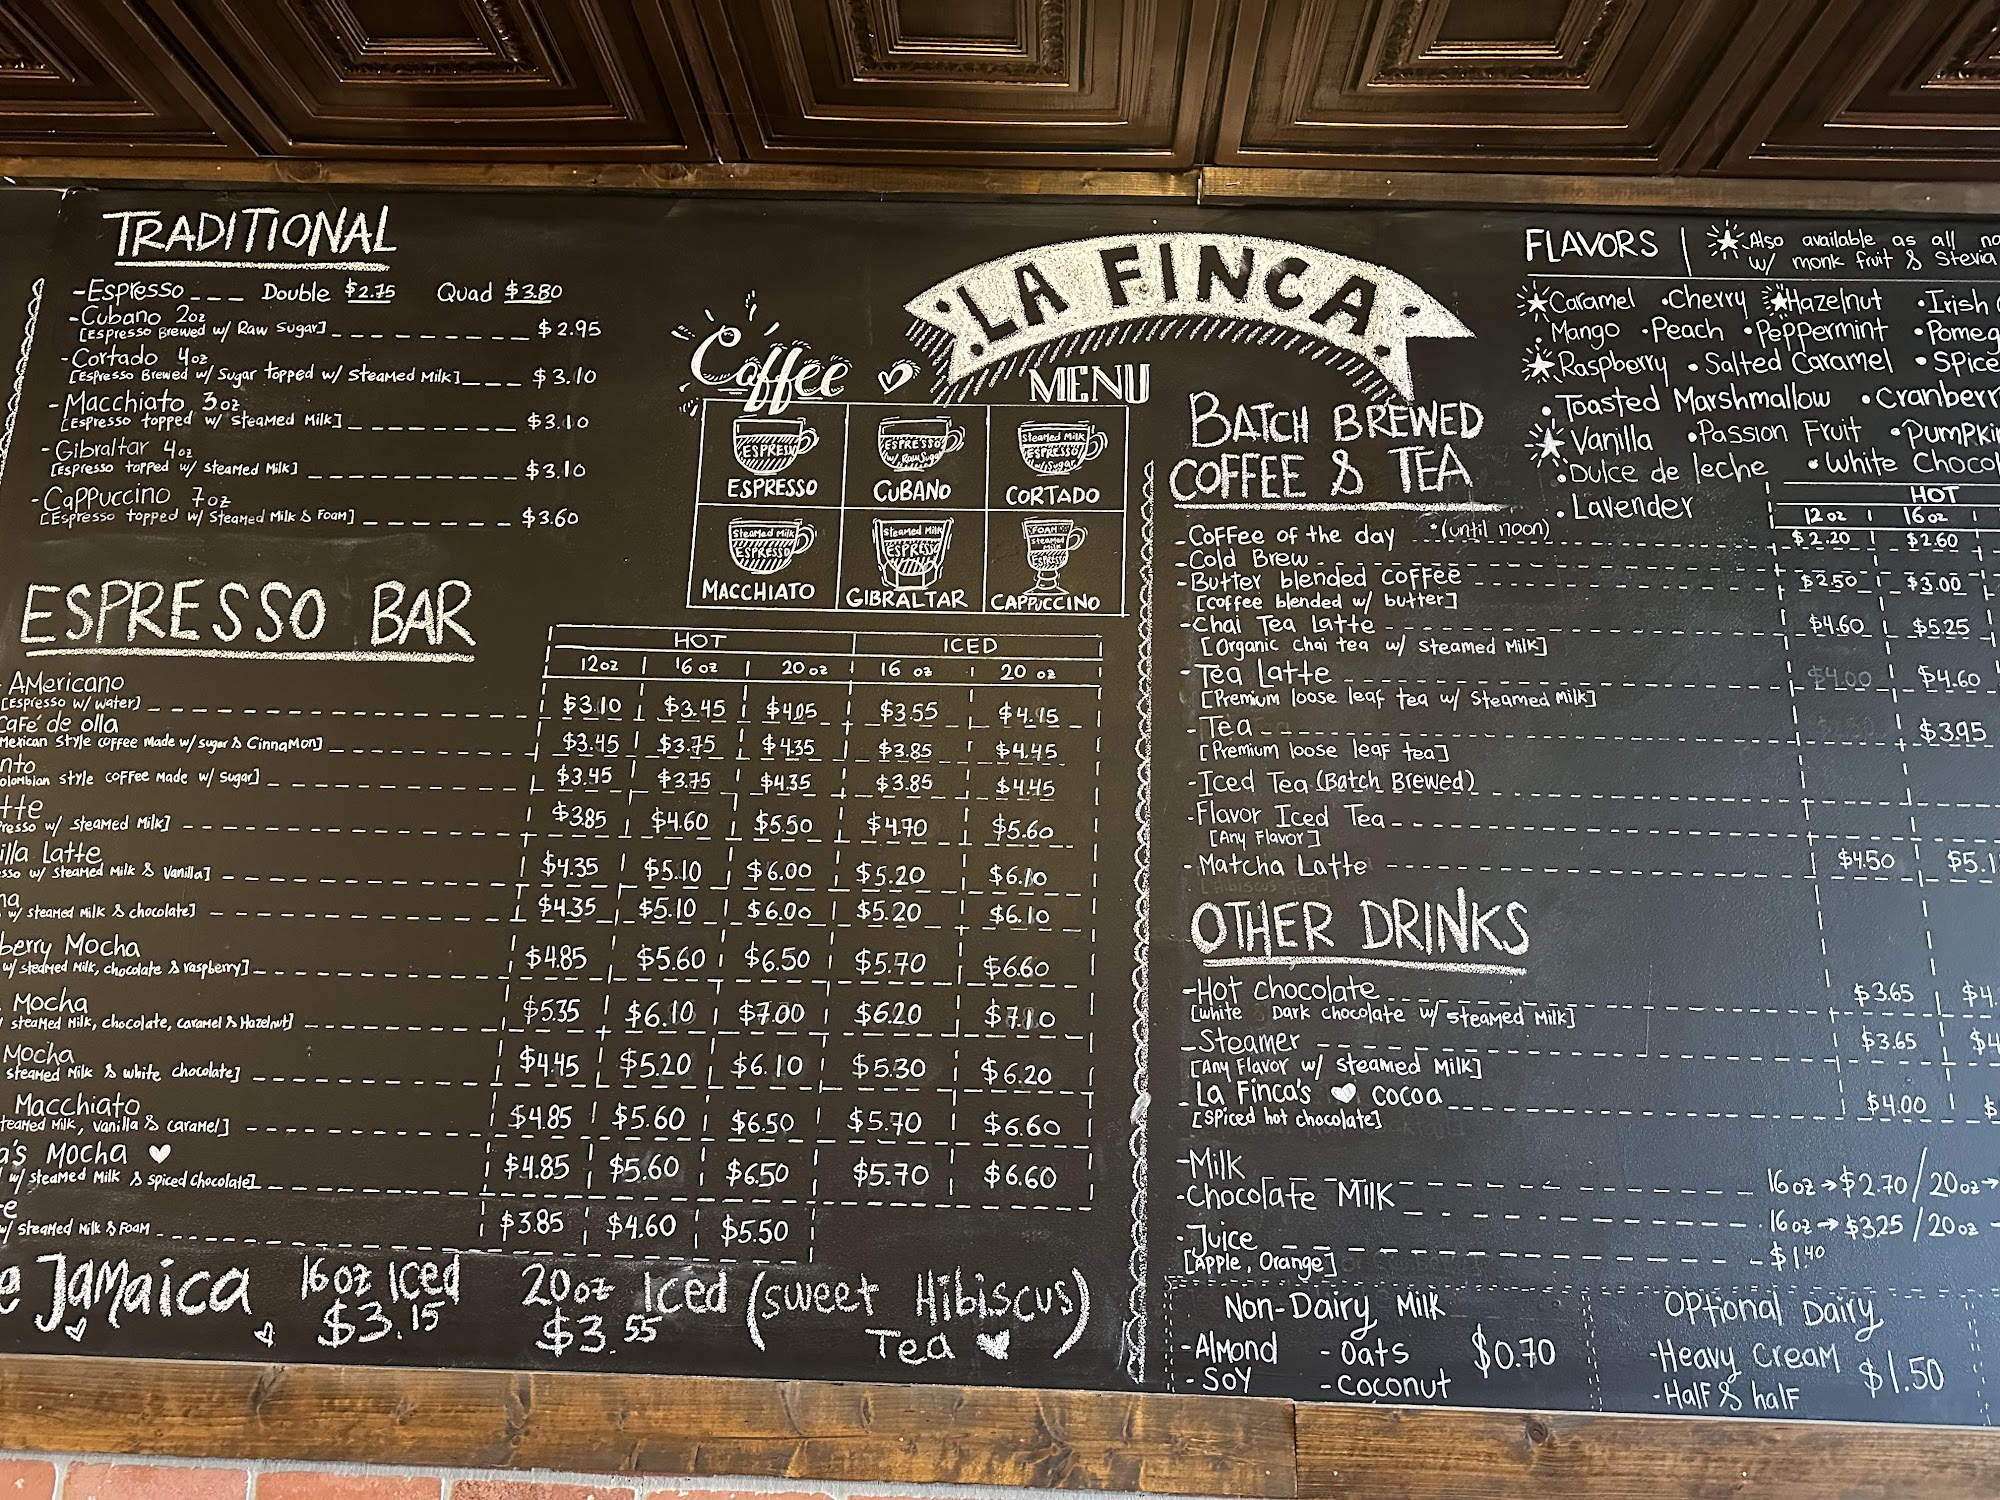 TRADITIONAL
-Espresso _ _ _ Double $2.75 Quad $3.80
-Cubano 2oz
[Espresso Brewed w/ Raw Sugar] $2.95
-Cortado 4oz
[Espresso Brewed w/ Sugar topped w/ Steamed Milk] $3.10
-Macchiato 3oz
[Espresso topped w/ Steamed Milk] $3.10
-Gibraltar 4oz
[Espresso topped w/ Steamed Milk] $3.10
-Cappuccino 7oz
[Espresso topped w/ Steamed Milk & Foam] $3.60
LA FINCA
Coffee MENU
ESPRESSO
ESPRESSO
w/ Raw Sugar
Steamed Milk
ESPRESSO
w/ Sugar
ESPRESSO CUBANO CORTADO
Steamed Milk
ESPRESSO
Steamed Milk
ESPRESSO
FOAM
Steamed
Milk
ESPRESSO
MACCHIATO GIBRALTAR CAPPUCCINO
ESPRESSO BAR
HOT ICED
12oz 16oz 20oz 16oz 20oz
AMericano
[Espresso w/ water] $3.10 $3.45 $4.05 $3.55 $4.15
Café de olla
Mexican Style coffee Made w/ sugar & CinnaMon] $3.45 $3.75 $4.35 $3.85 $4.45
nto
olombian style coffee Made w/ Sugar] $3.45 $3.75 $4.35 $3.85 $4.45
tte
resso w/ Steamed Milk] $3.85 $4.60 $5.50 $4.70 $5.60
illa Latte
sso w/ Steamed Milk & Vanilla] $4.35 $5.10 $6.00 $5.20 $6.10
w/ Steamed Milk & chocolate] $4.35 $5.10 $6.00 $5.20 $6.10
berry Mocha
w/ Steamed Milk, chocolate & raspberry] $4.85 $5.60 $6.50 $5.70 $6.60
Mocha
steamed Milk, chocolate, caramel & Hazelnut] $5.35 $6.10 $7.00 $6.20 $7.10
Mocha
steamed Milk & white chocolate] $4.45 $5.20 $6.10 $5.30 $6.20
Macchiato
teamed Milk, vanilla & caramel] $4.85 $5.60 $6.50 $5.70 $6.60
a's Mocha
w/ Steamed Milk & Spiced Chocolate] $4.85 $5.60 $6.50 $5.70 $6.60
e
w/ Steamed Milk & Foam $3.85 $4.60 $5.50
e Jamaica 16oz Iced 20oz Iced (Sweet Hibiscus
$3.15 $3.55 Tea)
FLAVORS | Also available as all na
w/ monk fruit & Stevia
Caramel •Cherry Hazelnut •Irish
Mango •Peach •Peppermint •Pomeg
Raspberry •Salted Caramel •Spice
•Toasted Marshmallow •Cranberr
Vanilla •Passion Fruit •Pumpki
•Dulce de leche •White Choco
•Lavender
BATCH BREWED
COFFEE & TEA
HOT
12oz 16oz
-Coffee of the day *(until noon) $2.20 $2.60
-Cold Brew
-Butter blended coffee $2.50 $3.00
[coffee blended w/ butter]
-Chai Tea Latte $4.60 $5.25
[Organic chai tea w/ steamed Milk]
-Tea Latte $4.00 $4.60
[Premium loose leaf tea w/ Steamed Milk]
-Tea $3.95
[Premium loose leaf tea]
-Iced Tea (Batch Brewed)
-Flavor Iced Tea
[Any Flavor]
-Matcha Latte $4.50 $5.1
OTHER DRINKS
-Hot Chocolate $3.65 $4.
[White Dark chocolate w/ steamed Milk]
-Steamer $3.65 $4
[Any Flavor w/ steamed Milk]
-La Finca's cocoa $4.00 $
[Spiced hot chocolate]
-Milk 16oz→$2.70/20oz→
-Chocolate Milk 16oz→$3.25/20oz
-Juice $1.40
[Apple, Orange]
Non-Dairy Milk
-Almond -Oats $0.70
-Soy -Coconut
Optional Dairy
-Heavy Cream $1.50
-Half & half